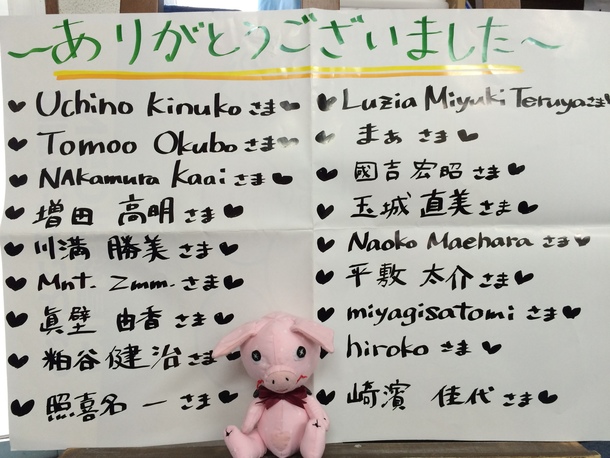 ～ありがとうございました～
♥Uchino Kinukoさま♥
♥Tomoo Okuboさま♥
♥NAkamura Kaaiさま♥
♥増田 高明さま♥
♥川満 勝美さま♥
♥Mnt. Zmm.さま♥
♥眞壁 由香さま♥
♥粕谷健治さま♥
♥照喜名 一さま♥
♥Luzia Miyuki Teruyaさま♥
♥まぁさま♥
♥國吉宏昭さま♥
♥玉城直美さま♥
♥Naoko Maeharaさま♥
♥平敷 太介さま♥
♥miyagisatomiさま♥
♥hirokoさま♥
♥崎濱 佳代さま♥